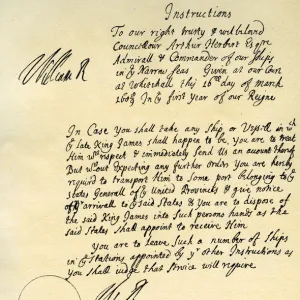 Instructions
To our right trusty & welbeloved
William R
Councellour Arthur Herbert Esqre
Admirall & Commander of our Ships
in ye Narrow seas Given at our Court
at Whitehall this 16th day of March
1688/9 In ye first year of our Reigne
In Case You shall take any Ship, or Vessell in wch
ye late King James shall happen to be, You are to treat
Him wth respect & immediately Send Us an account thereof
But wthout Expecting any further Order, You are hereby
required to transport Him to Some port belonging to ye
States Generall of ye United Provinces & give notice
of arrivall to ye said States & You are to dispose of
the said King James into Such persons hands as the
said States Shall appoint to receive Him
You are to leave Such a number of Ships
in ye Stations appointed by yr other Instructions as
You shall judge that Service will require
W R